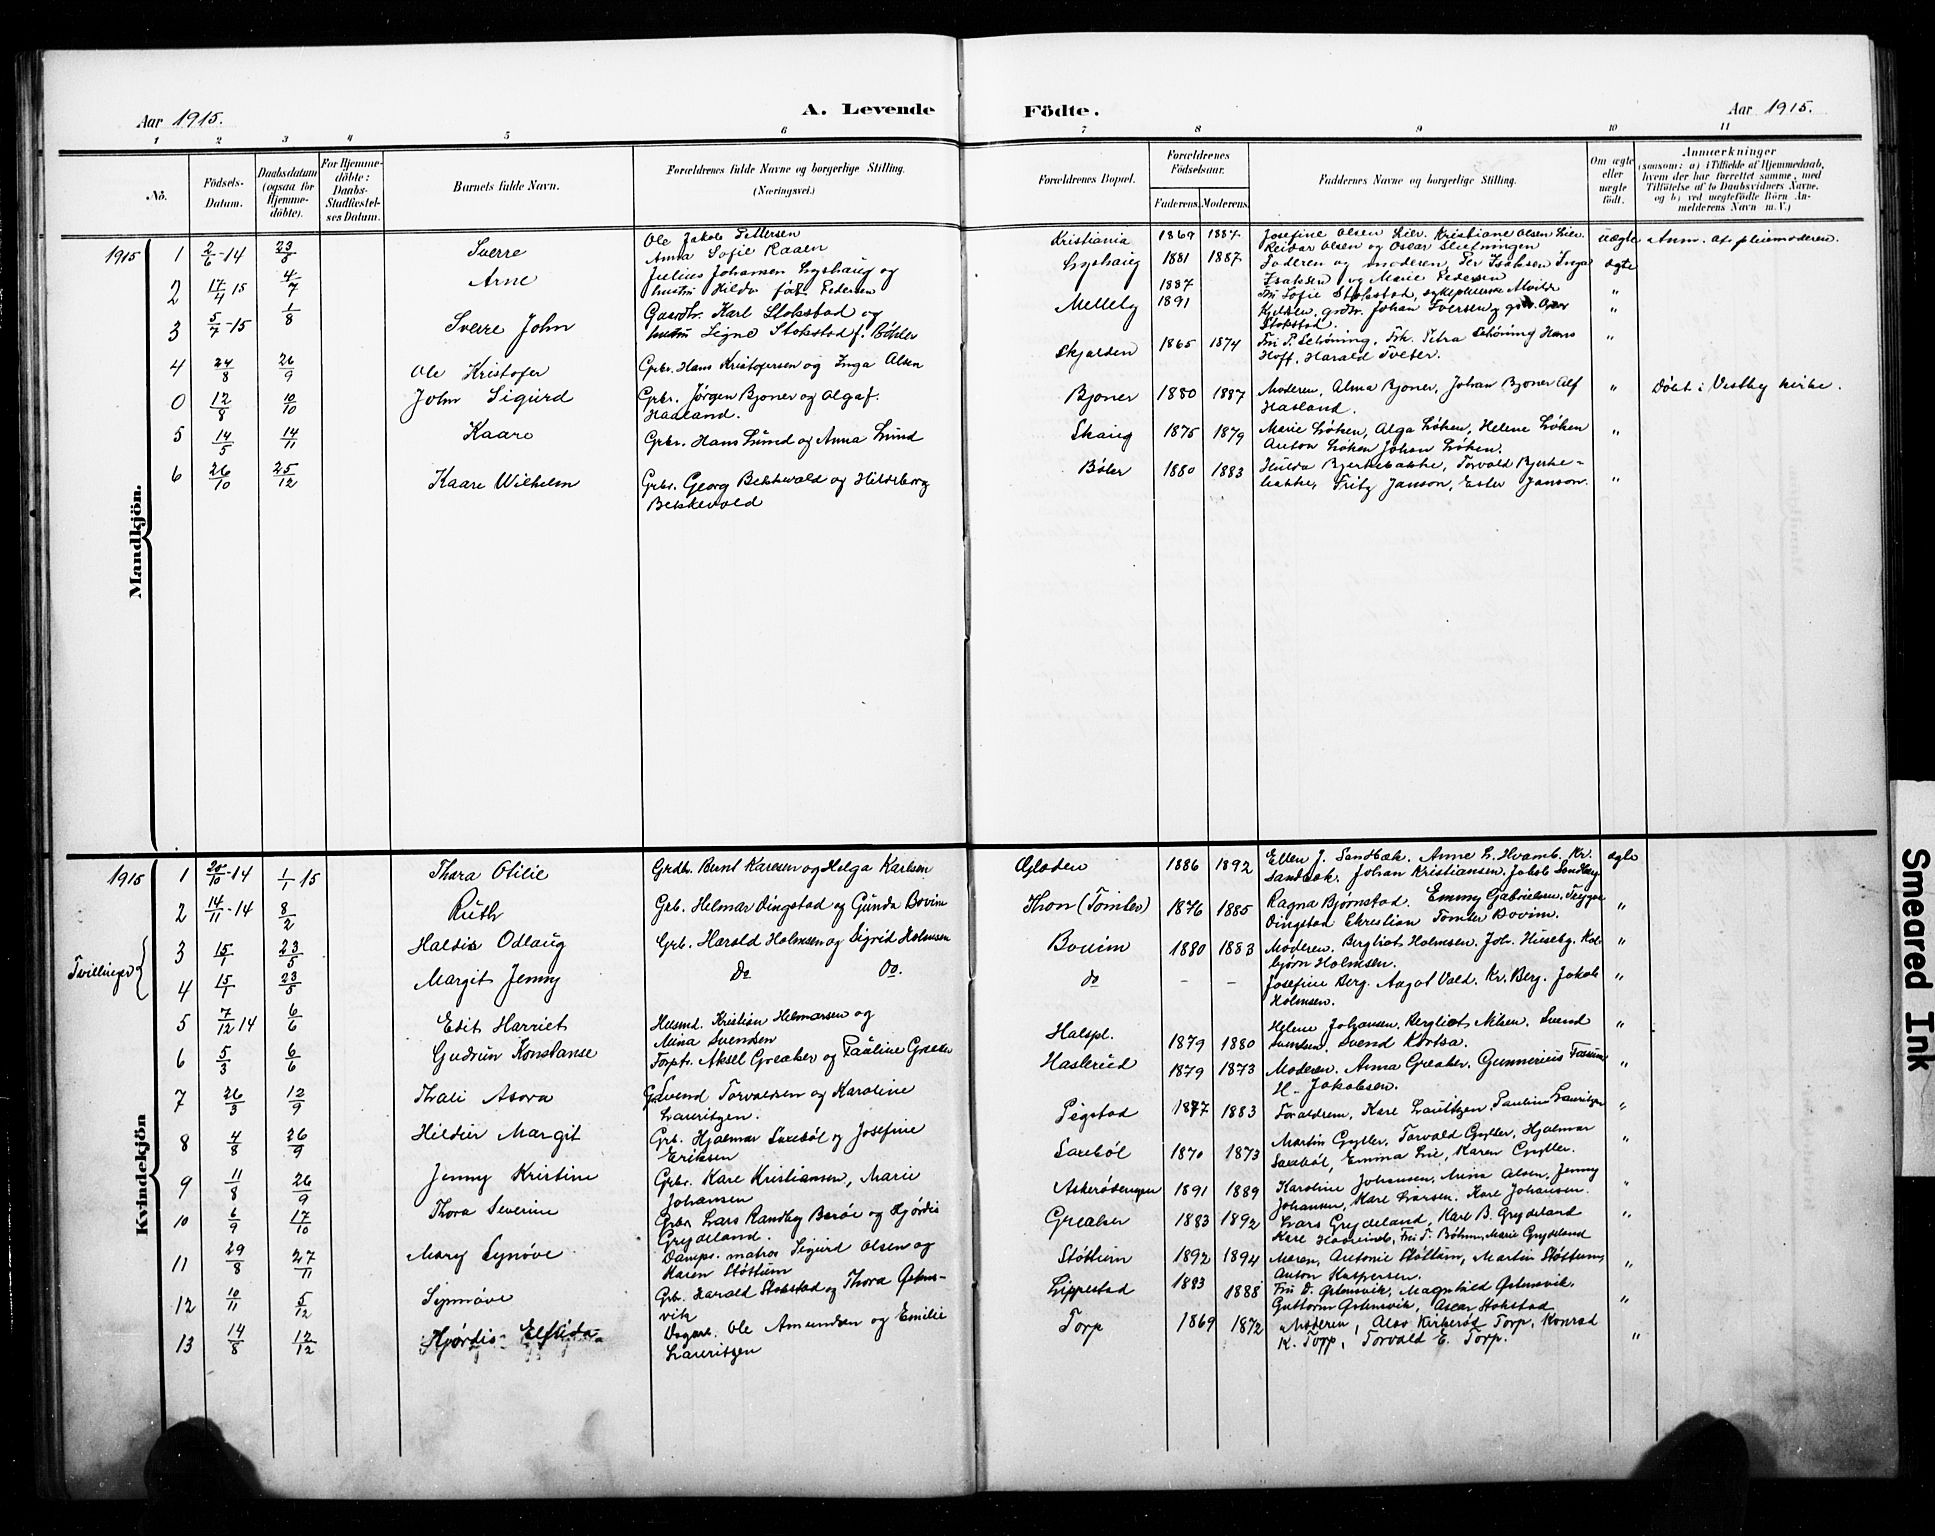 Aar 1915.
A. Levende
Födte.
Aar 1915.
1 2 3 4 5 6 7 8 9 10 11
No.
Födsels-Datum.
Daabsdatum (ogsaa for Hjemme-döbte).
For Hjemme-döbte: Daabs-Stadfæstel-ses Datum.
Barnets fulde Navn.
Forældrenes fulde Navne og borgerlige Stilling. (Næringsvei.)
Forældrenes Bopæl.
Forældrenes Födselsaar.
Faderens. Moderens.
Faddernes Navne og borgerlige Stilling.
Om ægte eller uægte födt.
Anmærkninger
(saasom: a) i Tilfælde af Hjemmedaab,
hvem der har forrettet samme, med
Tilföielse af to Daabsvidners Navne,
og b) ved uægtefödte Börn An-
melderens Navn m. V.)
Mandkjön.
1915 1 2/6-14 23/8 Sverre Ole Jakob Pettersen Anna Sofie Raaen Kristiania 1869 1887 Josefine Olsen Lier. Kristiane Olsen Lier. Reidar Olsen og Oscar uægte Anm. af pleiemoderen.
2 17/4 15 4/7 Arne Julius Johansen Lyshaug og hustru Hilda født Pedersen Lyshaug 1881 1887 Faderen og moderen, Per Isaksen Inga Isaksen og Marie Pedersen ægte
3 5/7-15 1/8 Sverre John Gaardbr. Karl Stokstad og hustru Signe Stokstad f. Böhler Melleby 1887 1891 Fru Sofie Stokstad, sykepleierske Alvilde Kjelsen, grdbr. Johan Iversen, g Stokstad. "
4 24/8 26/9 Ole Kristofer Grbr. Hans Kristofersen og Inga Olsen Skjolden 1865 1874 Fru P. Schöning, Frk. Petra Schöning Hans Hoff, Harald Tveter. "
0 12/8 10/10 John Sigurd Grbr. Jørgen Bjoner og Olga f. Haaland. Bjoner 1880 1887 Moderen, Alma Bjoner, Johan Bjoner Alf Hasland. " Döbt i Vestby kirke.
5 14/5 14/11 Kaare Grbr. Hans Lund og Anna Lund Skaug 1875 1879 Marie Løken, Olga Løken, Helene Løken Anton Løken Johan Løken. "
6 26/10 25/12 Kaare Wilhelm Grbr. Georg Bekkevold og Hildeborg Bekkevold Böler 1880 1883 Hulda Bjerkebakke, Torvald Bjerke=bakke, Fritz Janson, Ester Janson. "
Kvindekjön
1915 1 20/10-14 1/1 15 Thora Otilie Grdbr. Bernt Karlsen og Helga Karlsen 1886 1892 Ellen J. Sandbæk. Anne L. Hvamb. Kr. Sandbæk. Johan Kristiansen, Jakob Sandbæk ægte
2 14/11-14 8/2 Ruth Grb. Helmar Dingstad og Gunda Bovim Thon (Tomter) 1876 1885 Ragna Bjørnstad. Emmy Gabrielsen, Trygve Dingstad Kristian Tomter Bovim. "
Tvillinger 3 15/1 23/5 Haldis Odlaug Grb. Harald Holmsen og Sigrid Holmsen Bovim 1880 1883 Moderen. Bergliot Holmsen. Joh. Huseby. Kolbjørn Holmsen. "
4 15/1 23/5 Margit Jenny Do Do. do - - Josefine Berg. Aagot Vold. Kr. Berg. Jakob Holmsen. "
5 7/12 14 6/6 Edit Harriet Husmd. Kristian Helmersen og Mina Svendsen Halspl. 1879 1880 Helene Johansen. Bergliot Nilsen. Svend Svendsen. Svend Kortsa. "
6 5/3 6/6 Gudrun Konstanse Torptr. Aksel Greaker og Pauline Greaker Haslerud 1879 1873 Moderen. Anna Greaker, Gunnerius Fossum H. Jakobsen. "
7 26/3 12/9 Thali Asora Svend Torvaldsen og Karoline Lauritzen. Pigstad 1877 1883 Foraldrene, Karl Lauritzen, Pauline Lauritzen "
8 4/8 26/9 Hildur Margit Grb. Hjalmar Saxebøl og Josefine Eriksen Saxebøl 1870 1873 Martin Gylter, Torvald Gylter, Hjalmar Saxebøl, Emma Lie, Karen Gylter. "
9 11/8 26/9 Jenny Kristine Grbr. Karl Kristiansen, Marie Johansen Askerödengen 1891 1889 Karoline Johansen, Mina Olsen, Jenny Johansen, Karl Larsen. Karl Johansen. "
10 6/9 17/10 Thora Severine Grbr Lars Randby Berøe og Hjördis Grydeland. Greaker 1883 1892 Lars Grydeland, Karl B. Grydeland Karl Haavind, Fru T. Böhm, Marie Grydeland "
11 29/8 27/11 Mary Synøve Damps. matros Sigurd Olsen og Maren Støttum Støttum 1892 1894 Maren, Antonie Støttum, Martin Støttum, Anton Kaspersen. "
12 10/11 5/12 Synnøve Grb. Harald Stokstad og Thora Østensvik Lippestad 1883 1888 Fru D. Østensvik, Magnhild Østensvik. Guttorm Østensvik, Oscar Stokstad "
13 14/8 12/12 Hjördis Elfrida Dagarb. Ole Amundsen og Emilie Lauritzen Torp 1869 1872 Moderen, Olav Kirkerød Torp, Konrad K. Torp, Torvald E. Torp. "
Smeared Ink